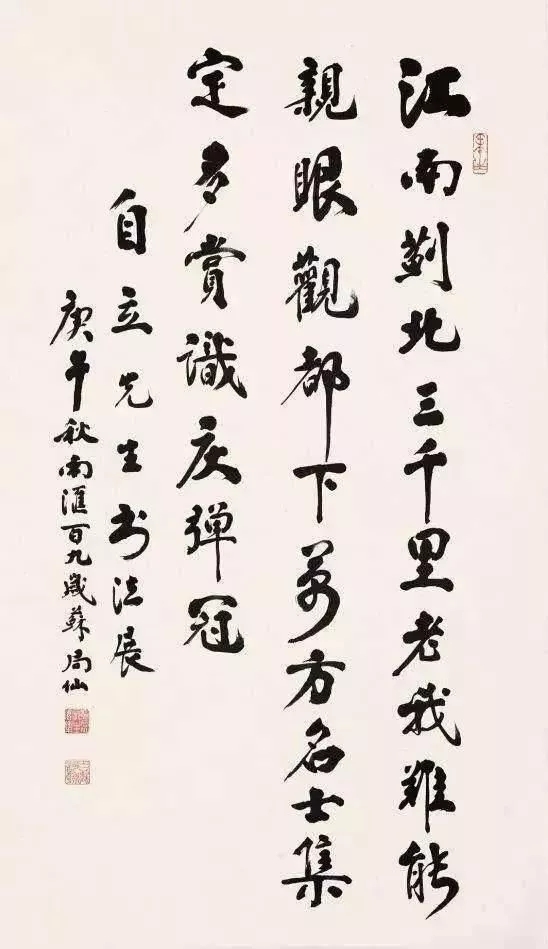 江南薊北三千里老我難能
親眼觀都下萬方名士集
定多賞識慶彈冠
自立先生书法展
庚午秋南滙百九歲蘇局仙